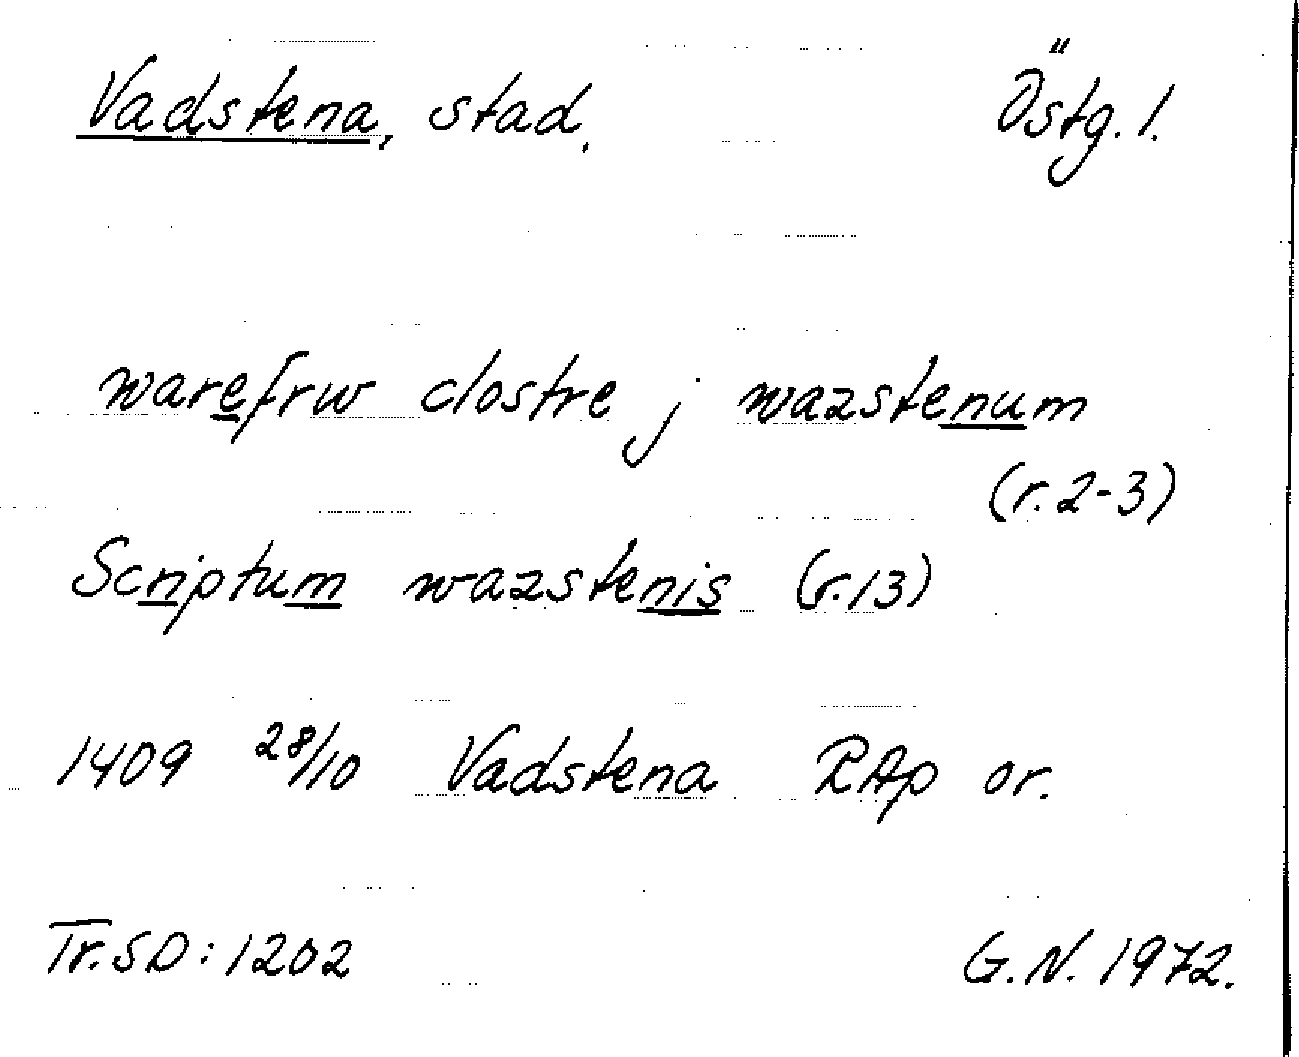 Vadstena, stad, Östg. l.
warefrw clostre j wazstenum
(r. 2-3)
Scriptum wazstenis (r. 13)
1409 28/10 Vadstena RAp or.
Tr. SD: 1202 G. N. 1972.